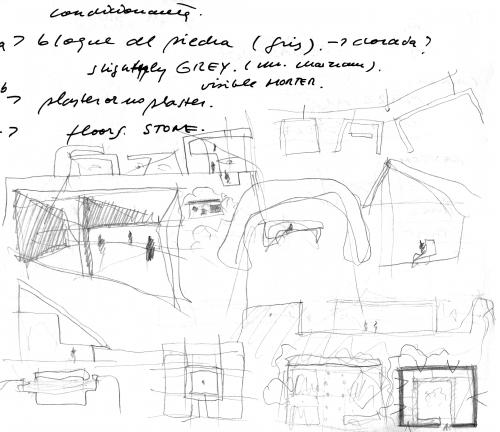 a → bloque de piedra (gris). → dorada?
slightly GREY. (
visible MORTER.
b → plaster or no plaster.
→ floors. STONE.